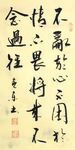 不亂於心不困於
情不畏將來不
念過往